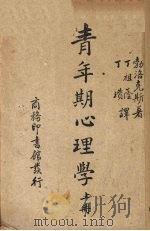 勃洛克斯著
丁祖蔭
丁瓚
譯
青年期心理學
商務印書館發行